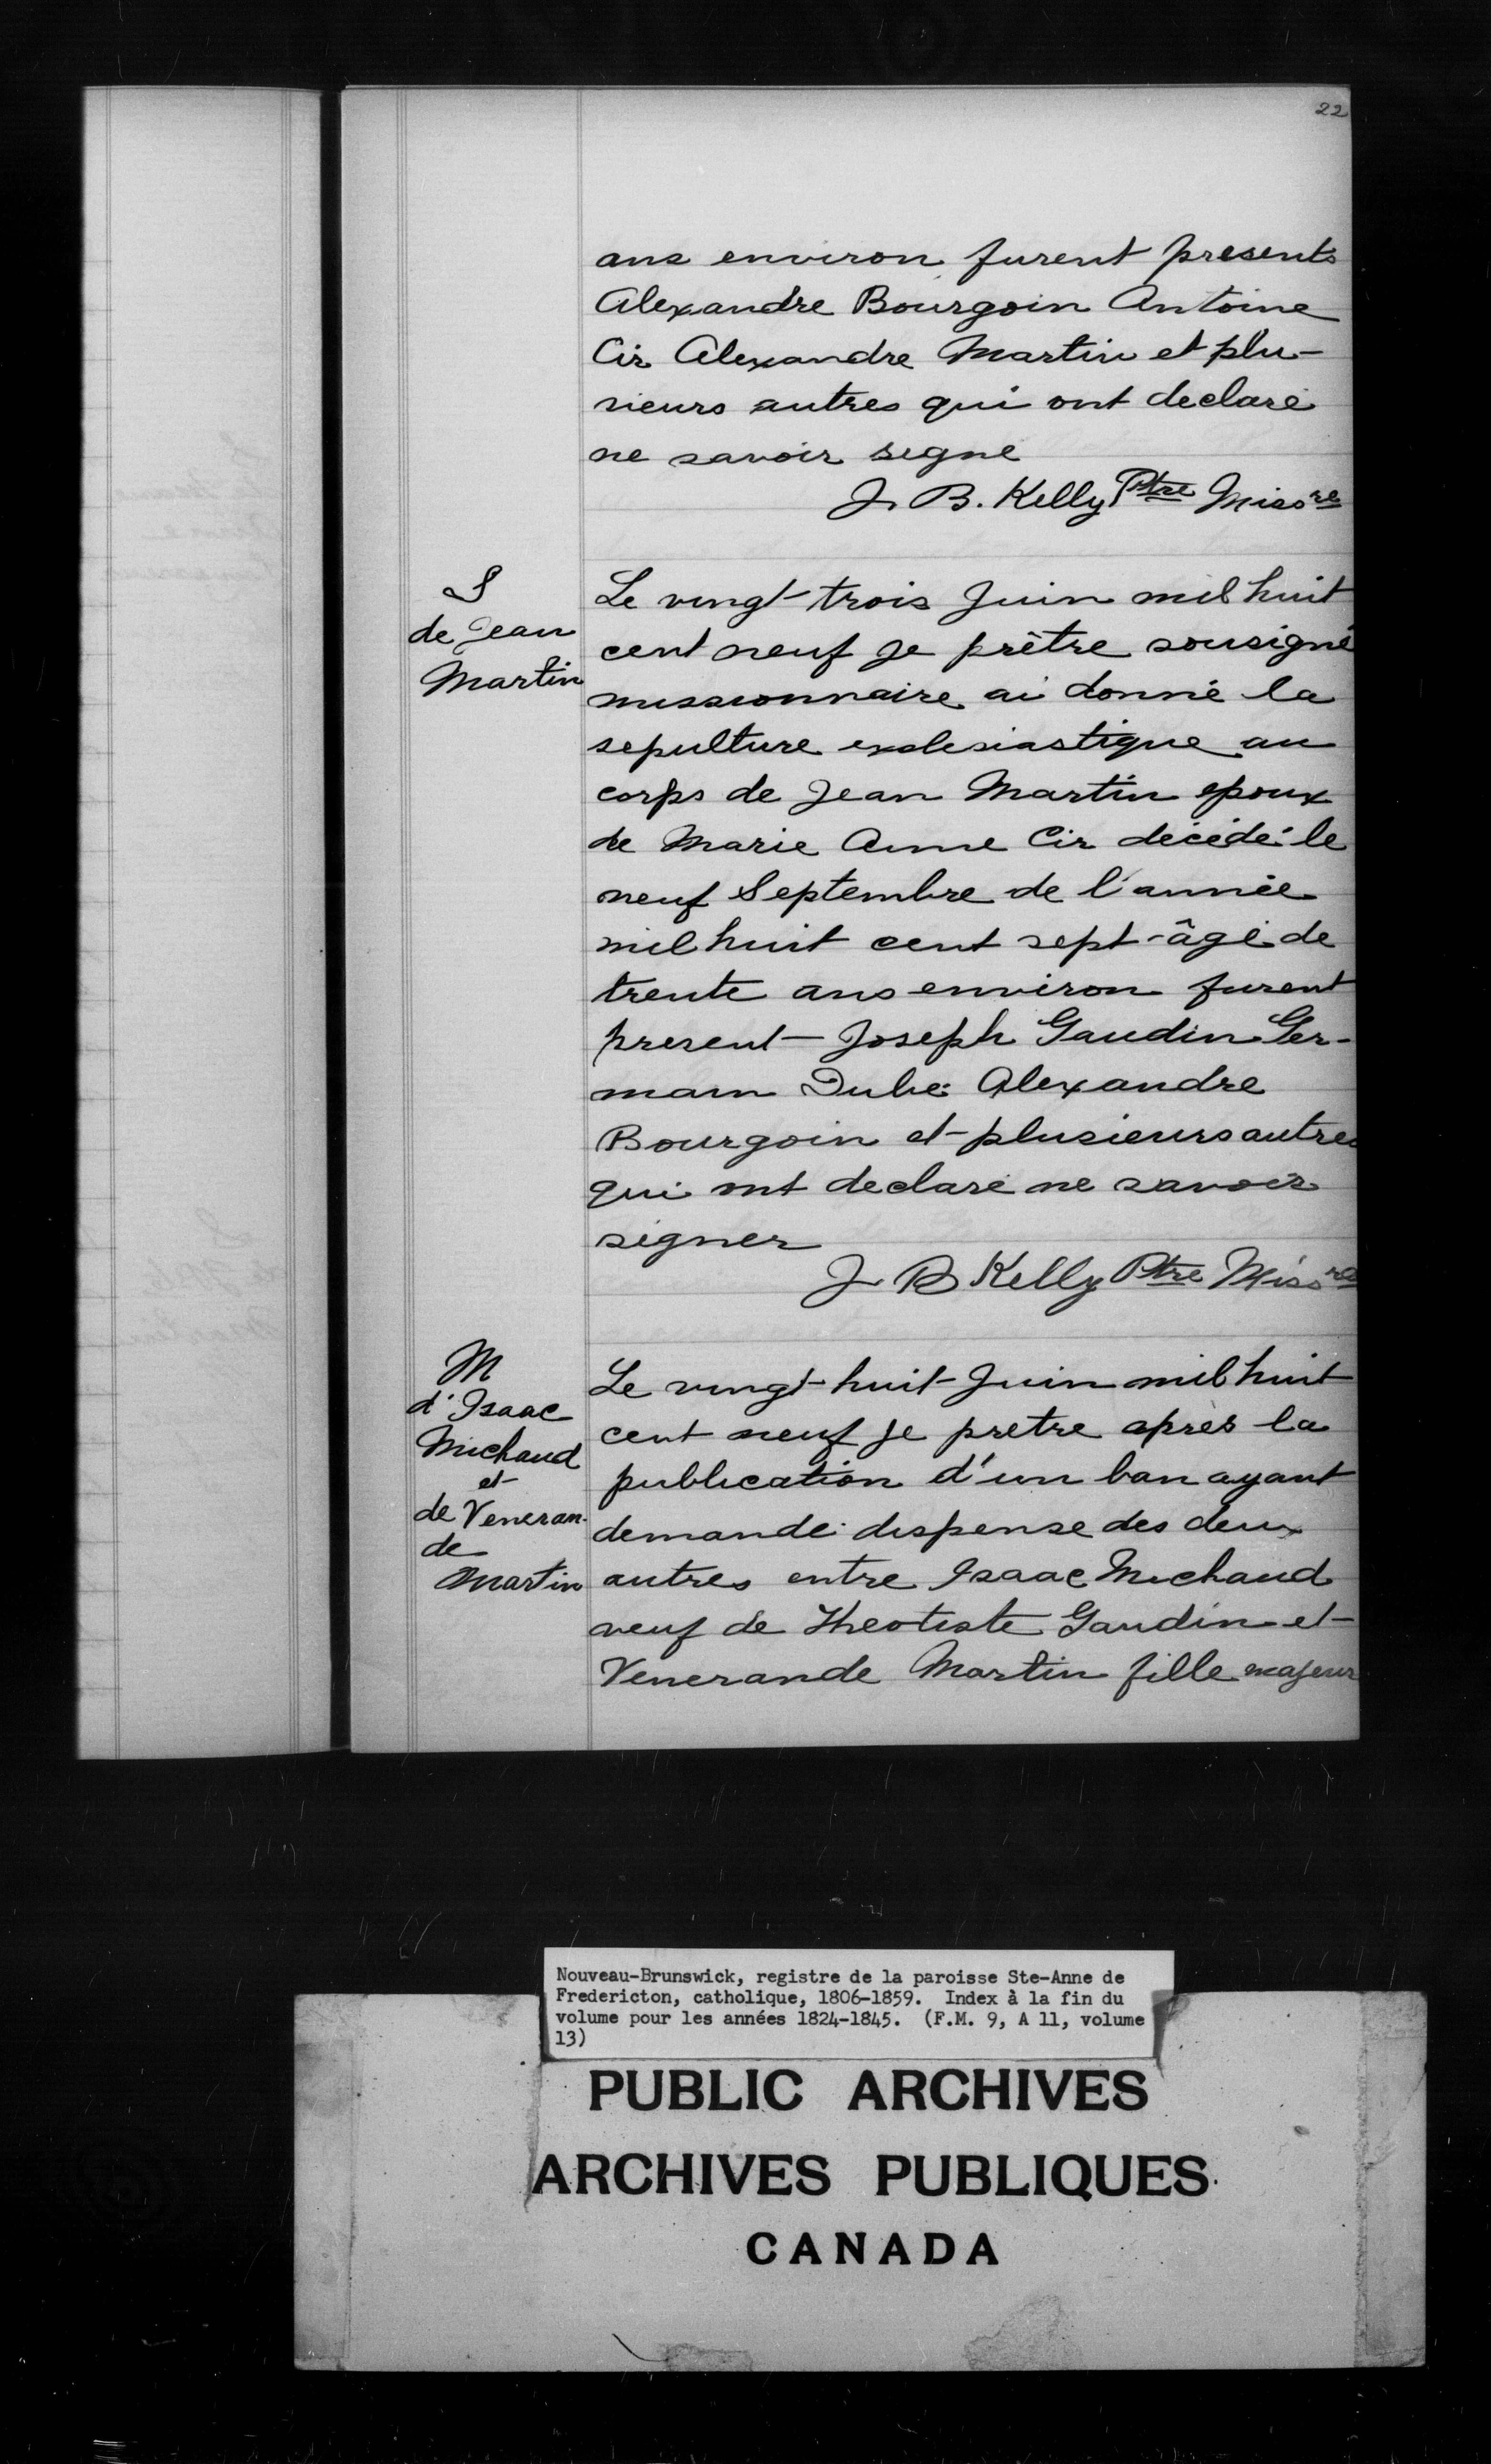 22
ans environ furent presents
Alexandre Bourgoin Antoine
Cir Alexandre Martin et plu-
sieurs autres qui ont declaré
ne savoir segne
J. B. Kelly Ptre Missre
S
de Jean
Martin
Le vingt-trois Juin mil huit
cent neuf je prêtre sousigné
missionnaire ai donné la
sepulture exclesiastique au
corps de Jean Martin epoux
de Marie Anne Cir décédé le
neuf Septembre de l'année
mil huit cent sept-âgé de
trente ans environ furent
present Joseph Gaudin Ger-
main Dubé Alexandre
Bourgoin et plusieurs autres
qui ont declaré ne savoir
signer
J B Kelly Ptre Missre
M
d'Isaac
Michaud
et
de Veneran-
de
Martin
Le vingt-huit Juin mil huit
cent neuf je pretre après la
publication d'un ban ayant
demandé dispense des deux
autres entre Isaac Michaud
veuf de Theotiste Gaudin et
Venerande Martin fille majeur
Nouveau-Brunswick, registre de la paroisse Ste-Anne de
Fredericton, catholique, 1806-1859. Index à la fin du
volume pour les années 1824-1845. (F.M. 9, A 11, volume
13)
PUBLIC ARCHIVES
ARCHIVES PUBLIQUES
CANADA